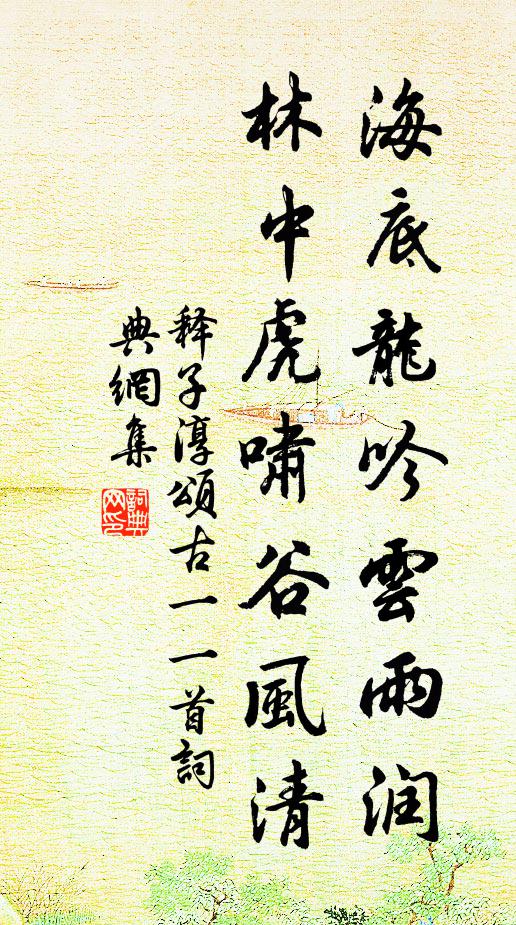 海底龍吟雲雨润
林中虎嘯谷風清
释子淳頌古一一首詞
典網集
詞典
网印